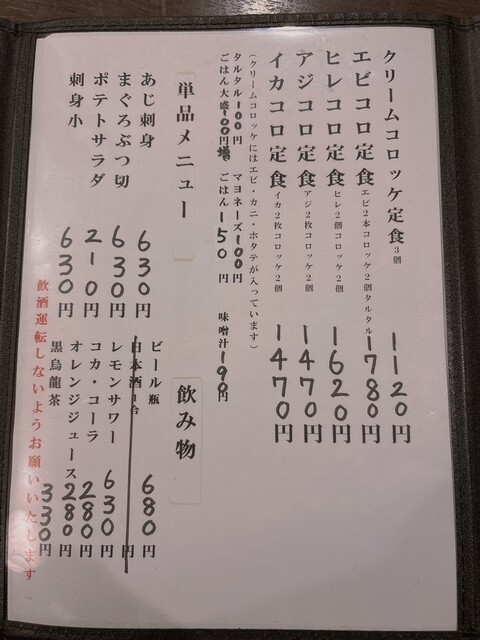 クリームコロッケ定食3個 1120円
エビコロ定食エビ2本コロッケ2個タルタル 1780円
ヒレコロ定食ヒレ2個コロッケ2個 1620円
アジコロ定食アジ2枚コロッケ2個 1470円
イカコロ定食イカ2枚コロッケ2個 1470円
(クリームコロッケにはエビ・カニ・ホタテが入っています)
タルタル100円 マヨネーズ100円
ごはん大盛100円増 ごはん150円 味噌汁190円
単品メニュー
あじ刺身 630円
まぐろぶつ切 630円
ポテトサラダ 210円
刺身小 630円
飲み物
ビール瓶 680円
日本酒一合 円
レモンサワー 630円
コカ・コーラ 280円
オレンジジュース 280円
黒烏龍茶 330円
飲酒運転しないようお願いいたします